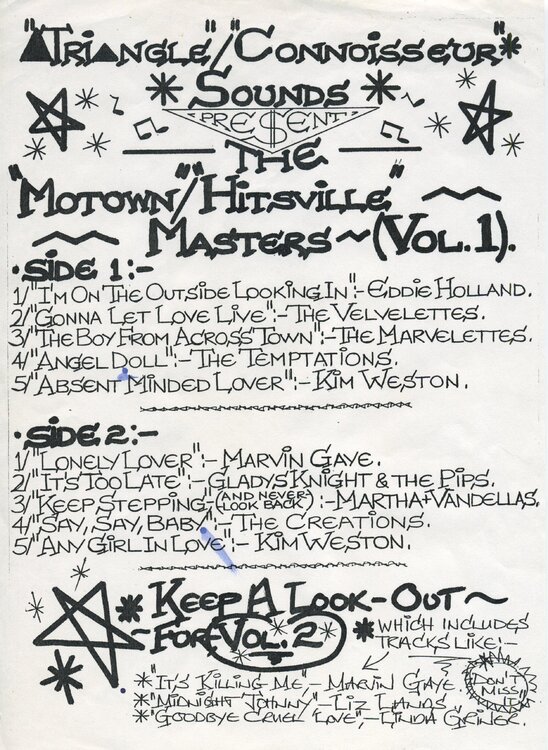 "TRIANGLE"/"CONNOISSEUR"*
* SOUNDS *
PRE$ENT
THE
"MOTOWN"/"HITSVILLE"
MASTERS~(VOL.1).
•SIDE 1:-
1/"I'M ON THE OUTSIDE LOOKING IN":-EDDIE HOLLAND.
2/"GONNA LET LOVE LIVE":-THE VELVELETTES.
3/"THE BOY FROM ACROSS TOWN":-THE MARVELETTES.
4/"ANGEL DOLL":-THE TEMPTATIONS.
5/"ABSENT MINDED LOVER":-KIM WESTON.
•SIDE 2:-
1/"LONELY LOVER":-MARVIN GAYE.
2/"IT'S TOO LATE":-GLADYS KNIGHT & THE PIPS.
3/"KEEP STEPPING"(AND NEVER LOOK BACK):-MARTHA+VANDELLAS.
4/"SAY, SAY, BABY":-THE CREATIONS.
5/"ANY GIRL IN LOVE":-KIM WESTON.
* KEEP A LOOK-OUT~
~FOR VOL. 2
* WHICH INCLUDES
TRACKS LIKE:-
*"IT'S KILLING ME"-MARVIN GAYE.
*"MIDNIGHT JOHNNY"-LIZ LANDS
*"GOODBYE CRUEL LOVE"-LINDA GRINER.
DON'T
MISS
IT